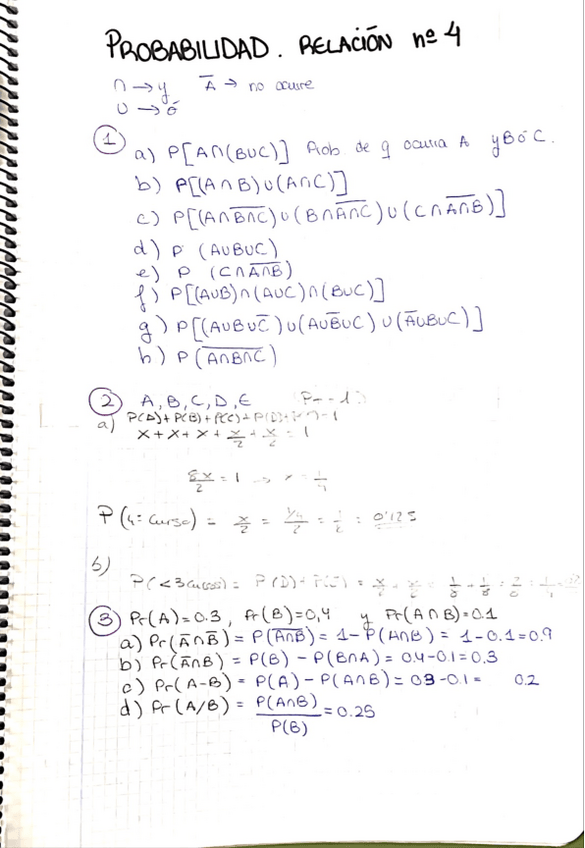 PROBABILIDAD. RELACIÓN nº 4
∩ → y    A̅ → no ocurre
∪ → ó
① a) P[A∩(B∪C)] Prob. de q ocurra A y B ó C.
b) P[(A∩B)∪(A∩C)]
c) P[(A∩B̅∩̅C̅)∪(B∩A̅∩̅C̅)∪(C∩A̅∩̅B̅)]
d) P (A∪B∪C)
e) P (C∩A̅∩̅B̅)
f) P[(A∪B)∩(A∪C)∩(B∪C)]
g) P[(A∪B∪C̅)∪(A∪B̅∪C)∪(A̅∪B∪C)]
h) P(A̅∩̅B̅∩̅C̅)
② A, B, C, D, E
a) P(A)+P(B)+P(C)+P(D)+
x+x+x+x/2+x/2=1
8x/2=1 →
P(4º curso) = x/2 = = 1/8 = 0'125
b)
P(<3 cursos) = P(D)+
③ Pr(A)=0.3, Pr(B)=0,4 y Pr(A∩B)=0.1
a) Pr(A̅∩B̅) = P(A̅∩̅B̅) = 1-P(A∩B) = 1-0.1=0.9
b) Pr(A̅∩B) = P(B) - P(B∩A) = 0.4-0.1=0.3
c) Pr(A-B) = P(A) - P(A∩B) = 0.3-0.1= 0.2
d) Pr(A/B) = P(A∩B)/P(B) = 0.25